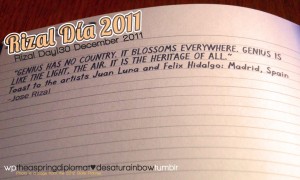 Rizal Día 2011
Rizal Day|30 December 2011
"GENIUS HAS NO COUNTRY. IT BLOSSOMS EVERYWHERE. GENIUS IS
LIKE THE LIGHT, THE AIR. IT IS THE HERITAGE OF ALL."
Toast to the artists Juan Luna and Felix Hidalgo: Madrid, Spain
-Jose Rizal
wp|theaspringdiplomat♥desaturainbow|tumblr